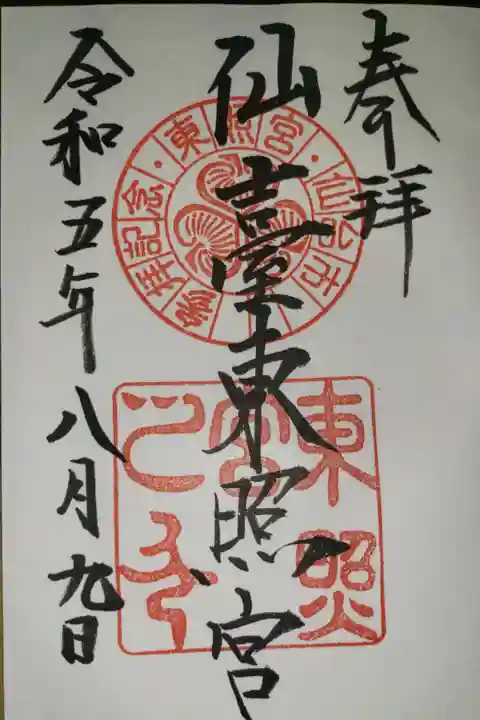 奉拝
仙臺東照宮
令和五年八月九日
東照宮
仙台市
参拝記念
東照宮之印